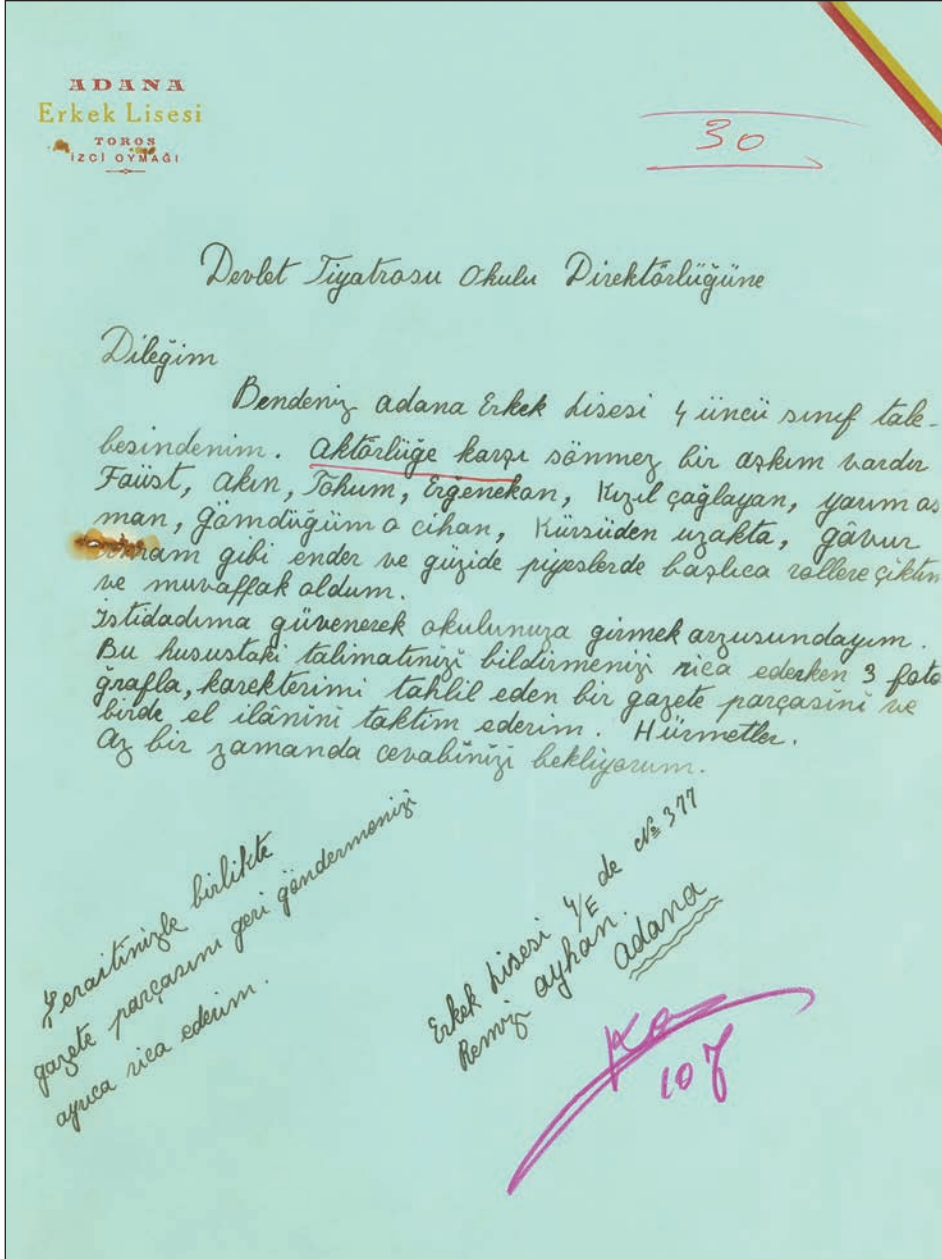 ADANA
Erkek Lisesi
TOROS
İZCİ OYMAĞI
30
Devlet Tiyatrosu Okulu Direktörlüğüne
Dileğim
Bendeniz Adana Erkek Lisesi 4 üncü sınıf tale-
besindenim. Aktörlüğe karşı sönmez bir aşkım vardır
Faüst, Akın, Tohum, Ergenekon, Kızıl çağlayan, yarım os
man, Gömdüğüm o cihan, Kürsüden uzakta, gâvur
gibi ender ve güzide piyeslerde başlıca rollere çıktım
ve muvaffak oldum.
İstidadıma güvenerek okulunuza girmek arzusundayım.
Bu husustaki talimatinizi bildirmenizi rica ederken 3 foto
ğrafla, karekterimi tahlil eden bir gazete parçasini ve
birde el ilânini taktim ederim. Hürmetler.
Az bir zamanda cevabinizi bekliyorum.
Şeraitinizle birlikte
gazete parçasını geri göndermenizi
ayrıca rica ederim.
Erkek Lisesi 4/E de № 377
Remzi Ayhan.
Adana
107